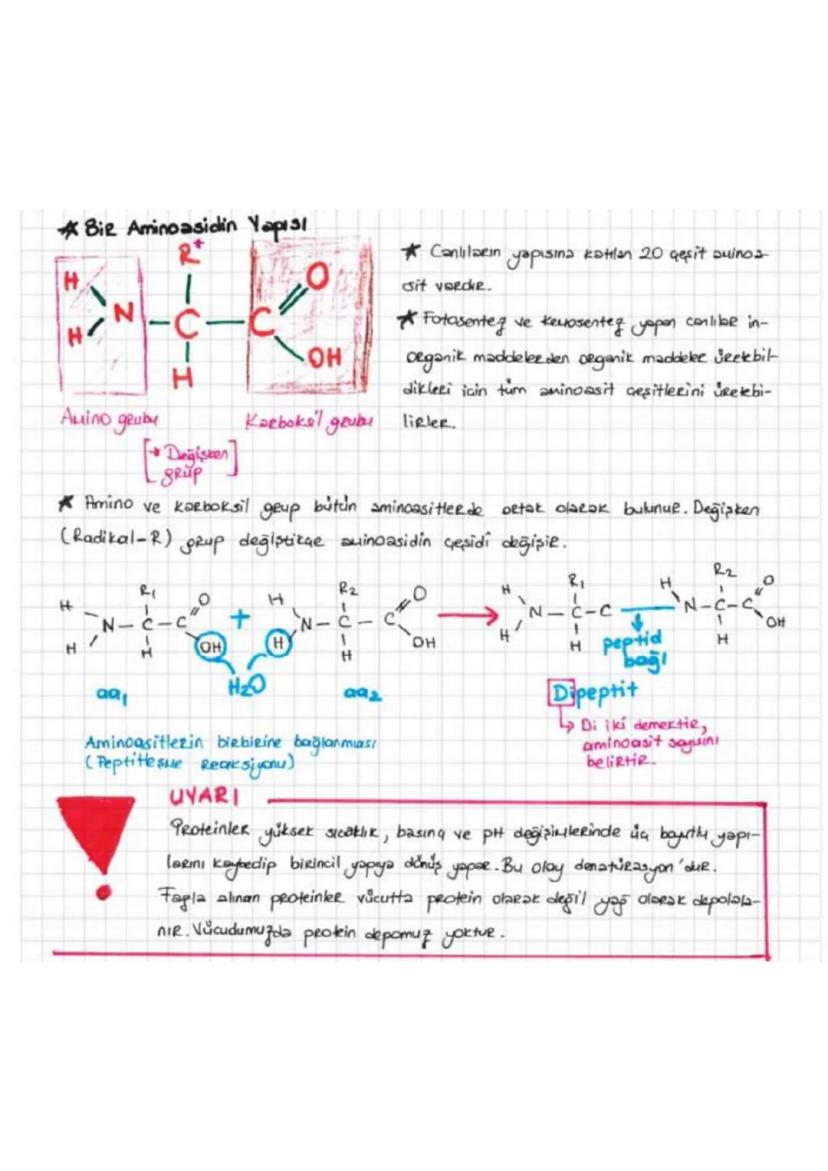 ★ Bir Aminoasidin Yapısı
R*
H
H
N
C
H
C
O
OH
Amino grubu
Karboksil grubu
[* Değişken
grup]
★ Canlıların yapısına katılan 20 çeşit aminoa-
sit vardır.
★ Fotosentez ve kemosentez yapan canlılar in-
organik maddelerden organik maddeler üretebil-
dikleri için tüm aminoasit çeşitlerini üretebi-
lirler.
★ Amino ve karboksil grup bütün aminoasitlerde ortak olarak bulunur. Değişken
(Radikal-R) grup değiştikçe aminoasidin çeşidi değişir.
H H N – C – C R1 H O OH
+
H H N – C – C R2 H O OH
→
H H N – C – C R1 H
H N – C – C R2 H O OH
peptid
bağı
H2O
aa1
aa2
Dipeptit
↳ Di iki demektir,
aminoasit sayısını
belirtir.
Aminoasitlerin birbirine bağlanması
(Peptitleşme Reaksiyonu)
UYARI
Proteinler yüksek sıcaklık, basınç ve pH değişimlerinde üç boyutlu yapı-
larını kaybedip birincil yapıya dönüş yapar. Bu olay denatürasyon'dur.
Fazla alınan proteinler vücutta protein olarak değil yağ olarak depolala-
nır. Vücudumuzda protein depomuz yoktur.